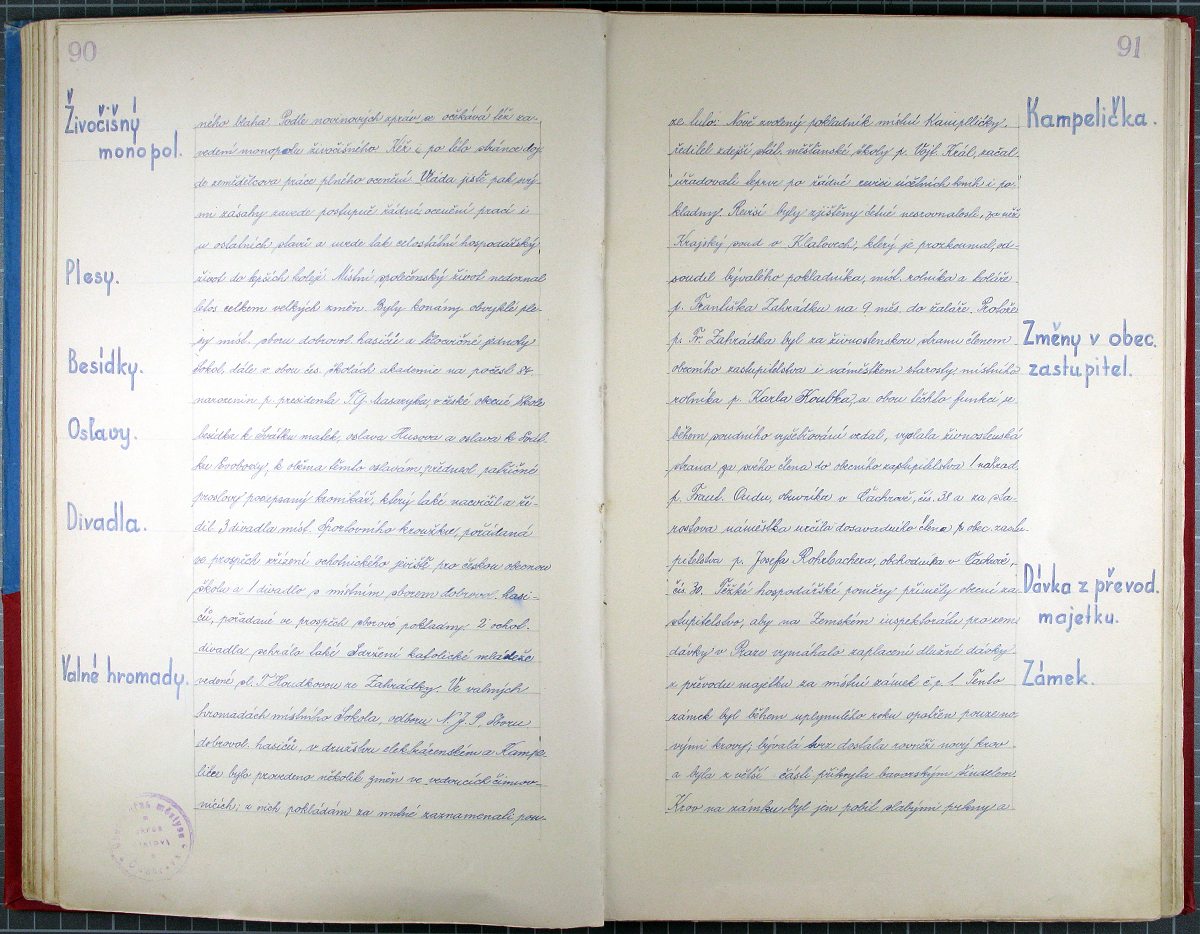 90
Živočišný
monopol.
Plesy.
Besídky.
Oslavy.
Divadla.
Valné hromady.
ného blaha. Podle novinových zpráv a očekává též za-
vedení monopolu živočišného. Kéž i po této stránce doj-
de zemědělcova práce plného ocenění. Vláda jistě pak svý-
mi zásahy zavede postupně řádné ocenění prací i
u ostatních stavů a uvede tak celostátní hospodářský
život do lepších kolejí. Místní společenský život nedoznal
letos celkem velkých změn. Byly konány obvyklé ple-
sy míst. sboru dobrovol. hasičů a tělocvičné jednoty
Sokol, dále v obou čes. školách akademie na počest 84.
narozenin p. presidenta T. G. Masaryka, v české obecné škole
besídka k Svátku matek, oslava Husova a oslava k Svát-
ku Svobody, k oběma těmto oslavám přednesl patřičné
proslovy podepsaný kronikář, který také nacvičil a ří-
dil 3 divadla míst. Sportovního kroužku, pořádaná
ve prospěch zřízení ochotnického jeviště pro českou obecnou
školu a 1 divadlo s místním sborem dobrovol. hasi-
čů, pořádané ve prospěch sborové pokladny. 2 ochot.
divadla sehrálo také Sdružení katolické mládeže
vedené sl. T. Houdkovou ze Zahrádky. Ve valných
hromadách místního Sokola, odboru N. J. P., Sboru
dobrovol. hasičů, v družstvu elektrárenském a Kampe-
ličce bylo provedeno několik změn ve vedoucích činov-
nících; z nich pokládám za nutné zaznamenati pou-
91
Kampelička.
Změny v obec.
zastupitel.
Dávka z převod.
majetku.
Zámek.
ze tuto: Nově zvolený pokladník místní Kampeličky,
ředitel zdejší stát. měšťanské školy p. Vojt. Král, začal
úřadovati teprve po řádné revisi účetních knih i po-
kladny. Revisí byly zjištěny četné nesrovnalosti, za něž
Krajský soud v Klatovech, který je prozkoumal, od-
soudil bývalého pokladníka, míst. rolníka a koláře
p. Františka Zahrádku na 9 měs. do žaláře. Protože
p. Fr. Zahrádka byl za živnostenskou stranu členem
obecního zastupitelstva i náměstkem starosty, místního
rolníka p. Karla Houbka, a obou těchto funkcí se
během soudního vyšetřování vzdal, vyslala živnostenská
strana za svého člena do obecního zastupitelstva 1 náhrad.
p. Frant. Oudu, obuvníka v Čachrově, čís. 38 a za sta-
rostova náměstka určila dosavadního člena p. obec. zastu-
pitelstva p. Josefa Rohrbachera, obchodníka v Čachrově,
čís. 30. Těžké hospodářské poměry přiměly obecní za-
stupitelstvo, aby na Zemském inspektorátu pro zem.
dávky v Praze vymáhalo zaplacení dlužné dávky
z převodu majetku za místní zámek č. p. 1. Tento
zámek byl během uplynulého roku opatřen pouze no-
vými krovy; bývalá tvrz dostala rovněž nový krov
a byla z větší části přikryta bavorským šindelem.
Krov na zámku byl jen pobit slabými prkny a